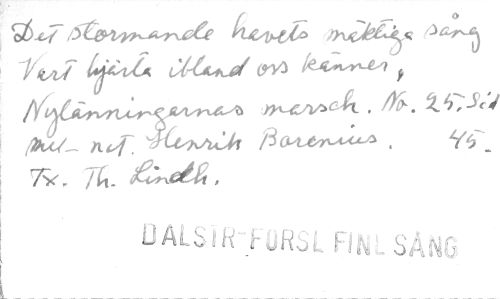 Det stormande havets mäktiga sång
Vart hjärta ibland oss känner,
Nylänningarnas marsch. No. 25. Sid
mel- not. Henrik Borenius. 45.
Tx. Th. Lindh.
DALSTR-FORSL FINL SÅNG